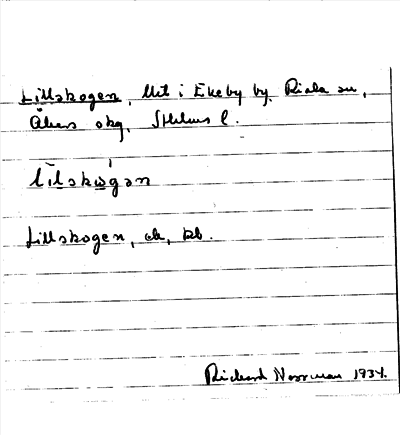 Lillskogen, lht i Ekeby by, Riala sn,
Åkers skg, Sthlms l.
lilskogan
Lillskogen, ek, kb.
Rickard Norrman 1934.